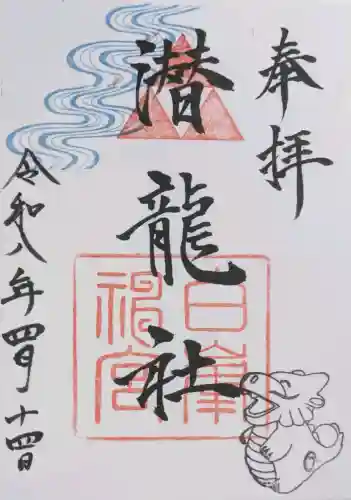 奉拝
潜龍社
白峯
神宮
令和八年四月十四日